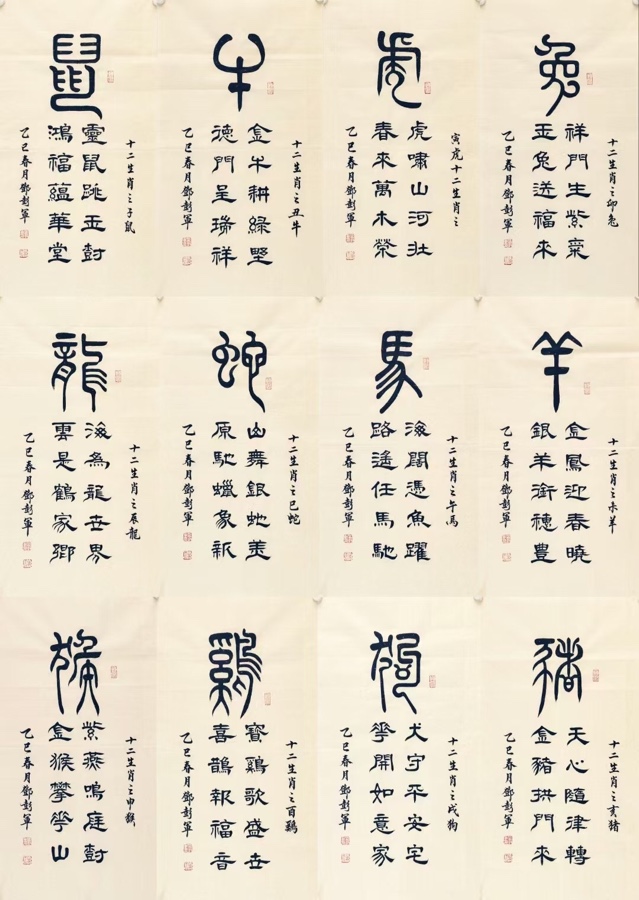 鼠
十二生肖之子鼠
靈鼠跳玉尌
鴻福蘊華堂
乙巳春月鄧彭軍
牛
十二生肖之丑牛
金牛耕綠野
德門呈瑞祥
乙巳春月鄧彭軍
虎
寅虎十二生肖之
虎嘯山河壯
春來萬木榮
乙巳春月鄧彭軍
兔
十二生肖之卯兔
祥門生紫氣
玉兔送福來
乙巳春月鄧彭軍
龍
十二生肖之辰龍
海為龍世界
雲是鶴家鄉
乙巳春月鄧彭軍
蛇
十二生肖之巳蛇
山舞銀蛇美
原馳蠟象新
乙巳春月鄧彭軍
馬
十二生肖之午馬
海闊憑魚躍
路遙任馬馳
乙巳春月鄧彭軍
羊
十二生肖之未羊
金鳳迎春曉
銀羊銜穗豐
乙巳春月鄧彭軍
猴
十二生肖之申猴
紫燕鳴庭尌
金猴攀花山
乙巳春月鄧彭軍
鷄
十二生肖之酉鷄
寶鷄歌盛世
喜鵲報福音
乙巳春月鄧彭軍
狗
十二生肖之戌狗
犬守平安宅
花開如意家
乙巳春月鄧彭軍
豬
十二生肖之亥猪
天心隨律轉
金豬拱門來
乙巳春月鄧彭軍